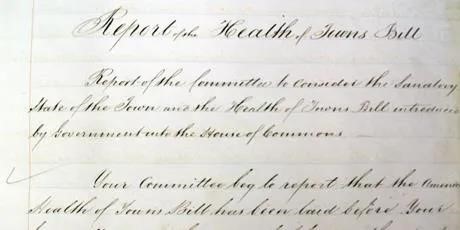 Report of the Health of Towns Bill
Report of the Committee to consider the Sanatory
State of the Town and the Health of Towns Bill introduced
by Government into the House of Commons.
Your Committee beg to report that the
Health of Towns Bill has been laid before Your